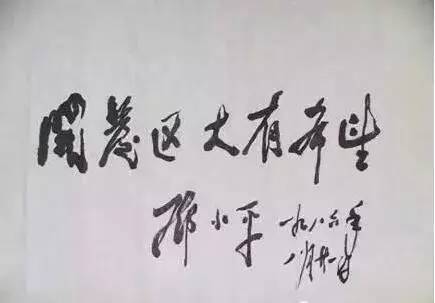 開發区大有希望
邓小平
一九八六年
八月廿一日